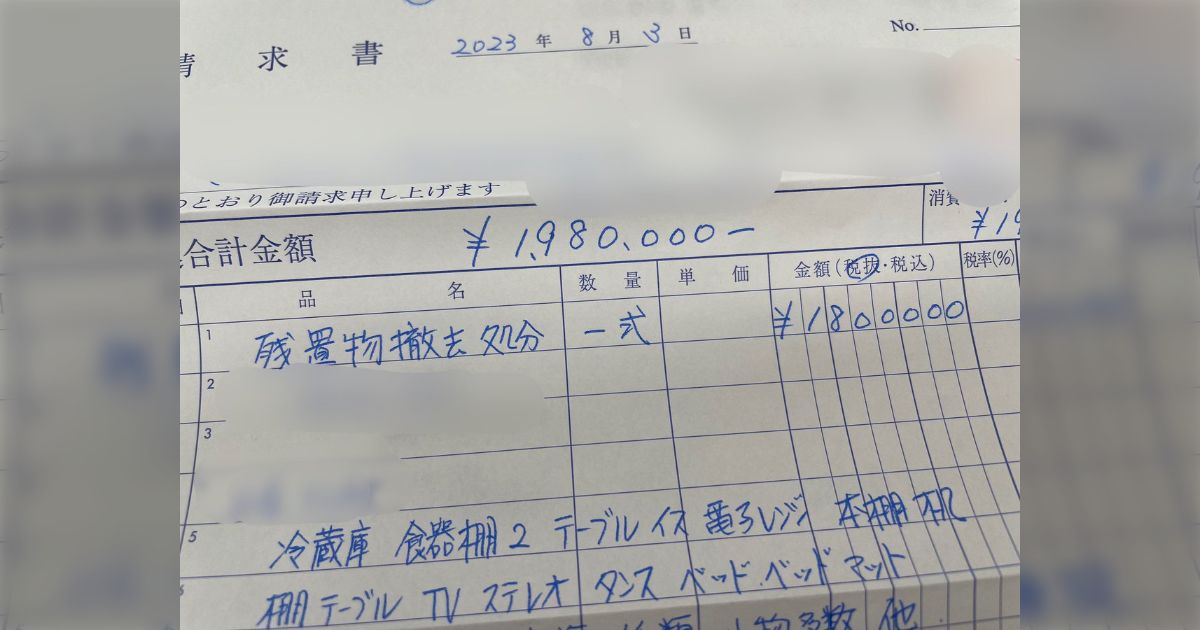 請求書 2023年8月3日 No.
とおり御請求申し上げます
合計金額 ¥1,980,000- 消費 ¥19
品名 数量 単価 金額(税抜・税込) 税率(%)
1 残置物撤去処分 一式 ¥1800000
2
3
5 冷蔵庫 食器棚2 テーブル イス 電子レンジ 本棚 机
棚 テーブル TV ステレオ タンス ベッド ベッドマット
小物多数 他